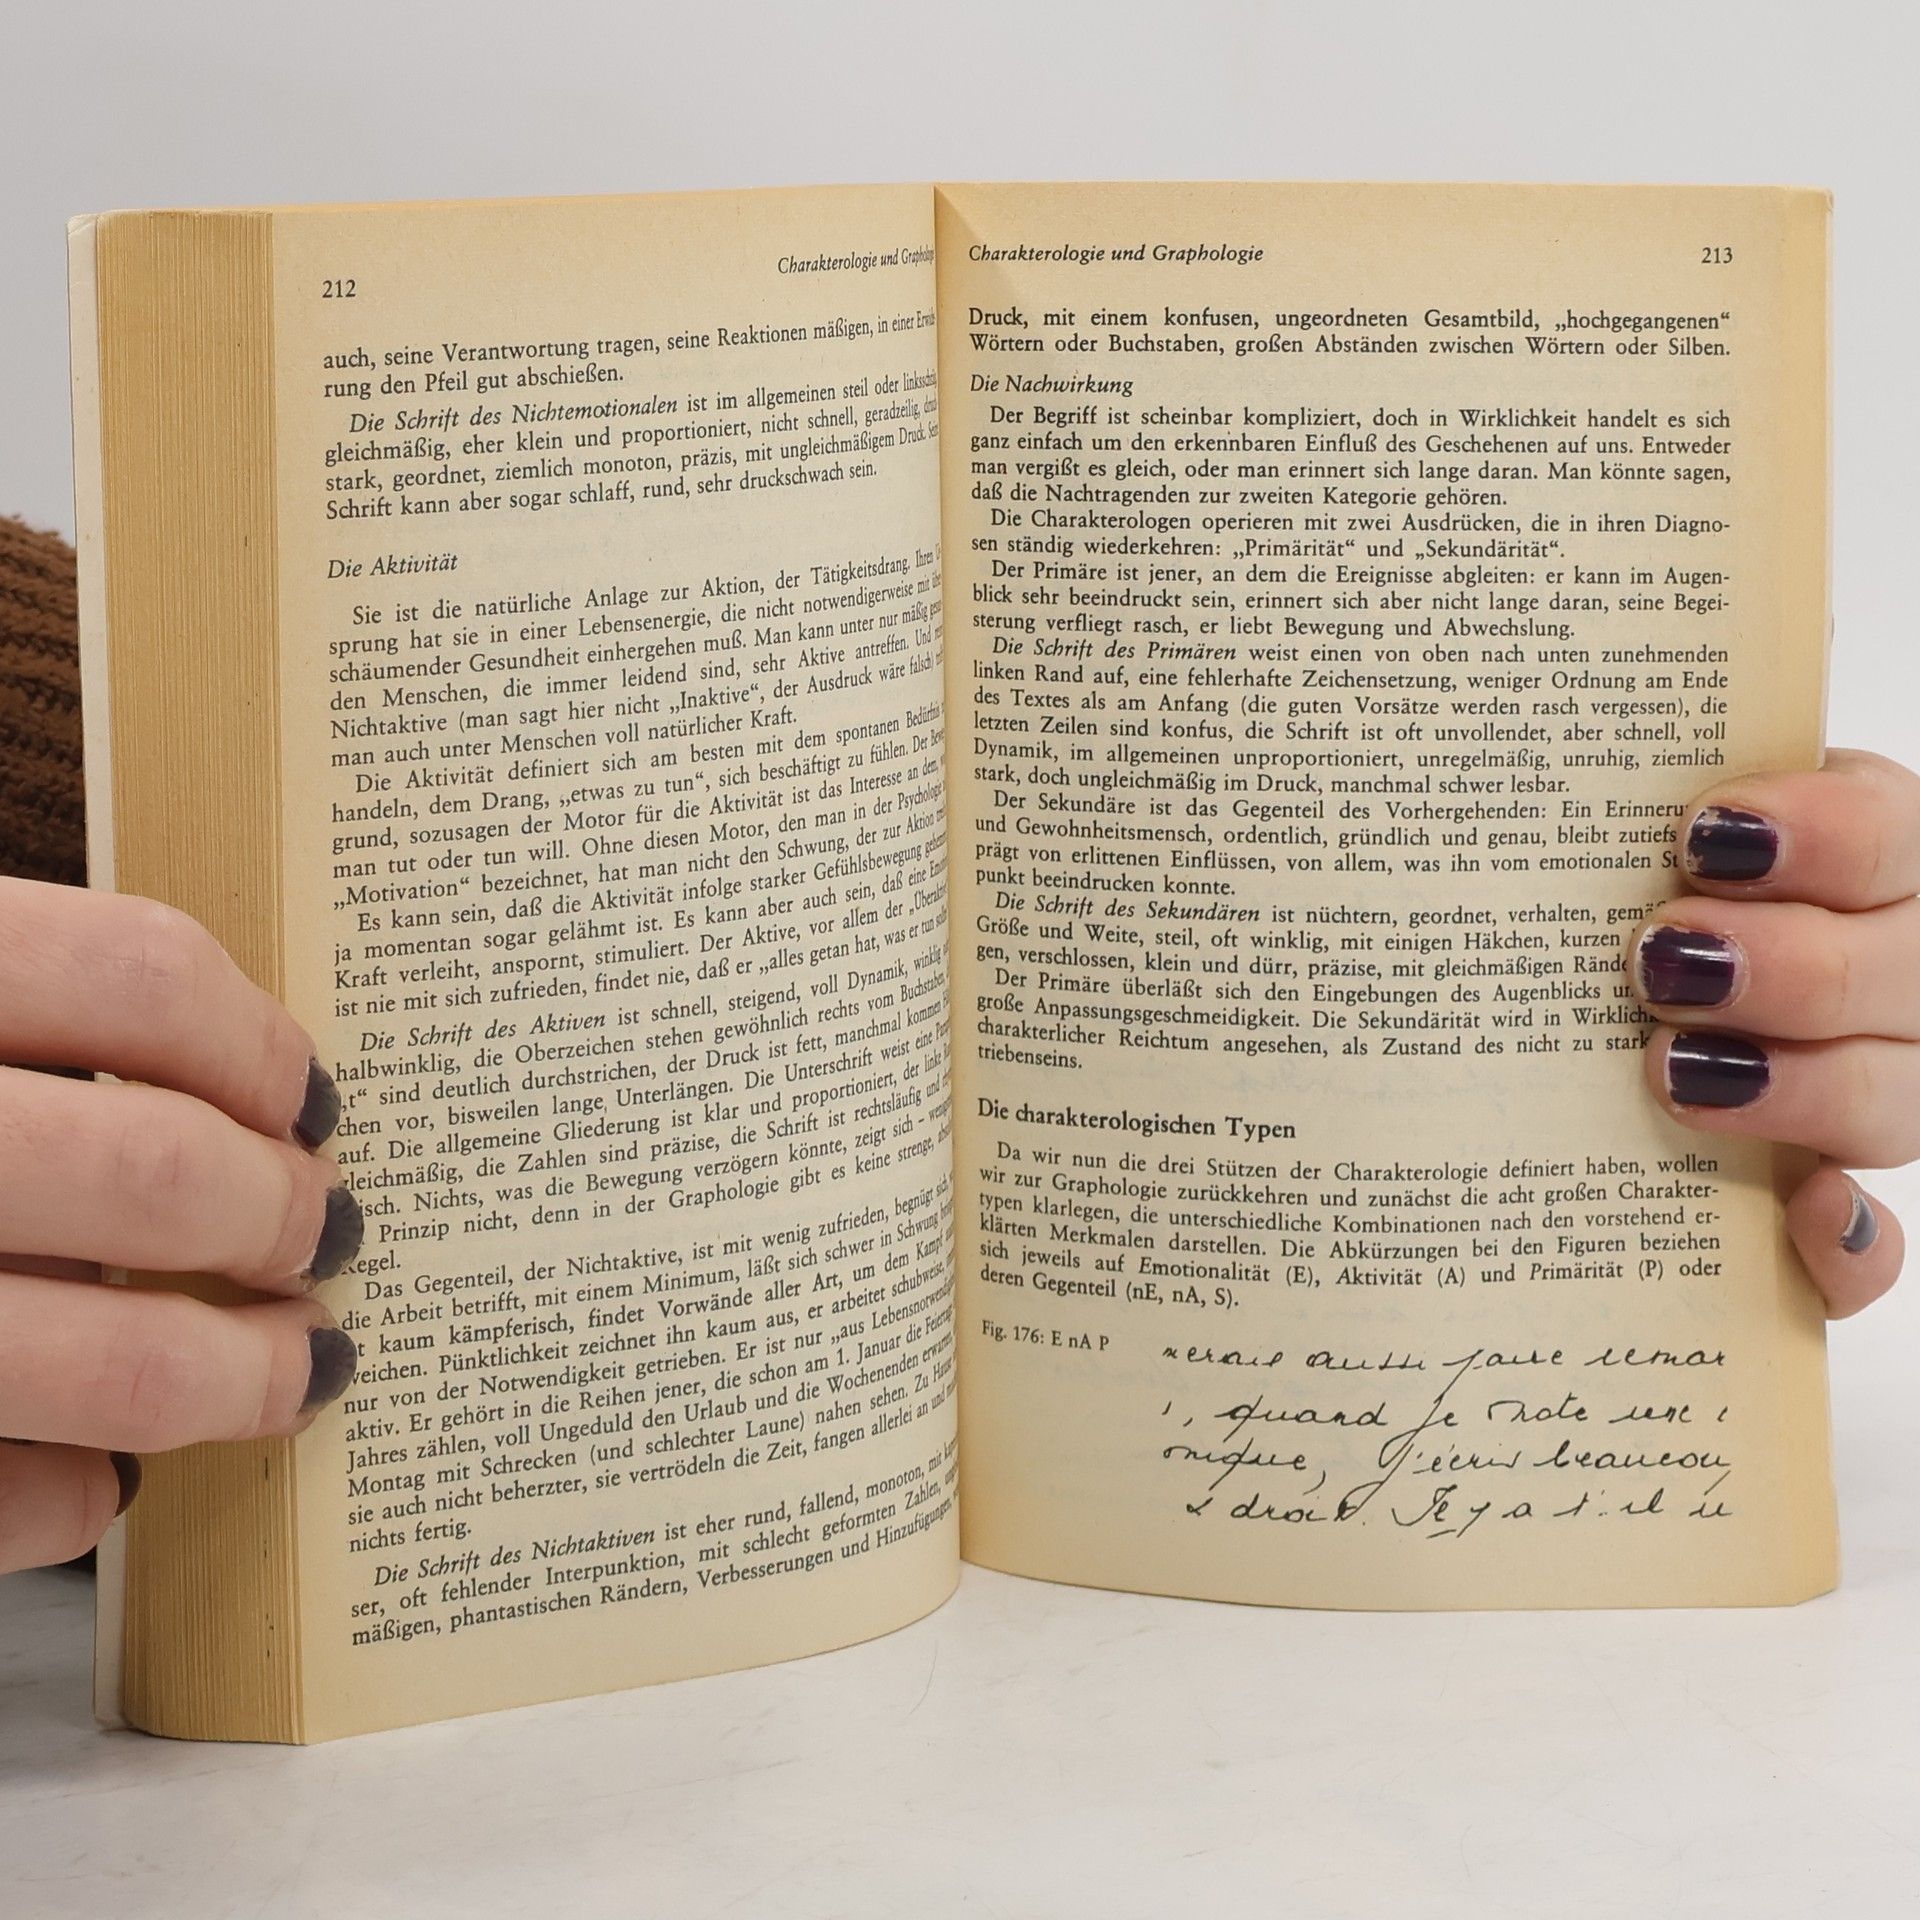 212
Charakterologie und
auch, seine Verantwortung tragen, seine Reaktionen mäßigen, in einer
rung den Pfeil gut abschießen.
Die Schrift des Nichtemotionalen ist im allgemeinen steil oder
gleichmäßig, eher klein und proportioniert, nicht schnell, geradzeilig,
stark, geordnet, ziemlich monoton, präzis, mit ungleichmäßigem Druck.
Schrift kann aber sogar schlaff, rund, sehr druckschwach sein.
Die Aktivität
Sie ist die natürliche Anlage zur Aktion, der Tätigkeitsdrang. Ihren
sprung hat sie in einer Lebensenergie, die nicht notwendigerweise mit
schäumender Gesundheit einhergehen muß. Man kann unter nur mäßig
den Menschen, die immer leidend sind, sehr Aktive antreffen. Und
Nichtaktive (man sagt hier nicht „Inaktive“, der Ausdruck wäre falsch)
man auch unter Menschen voll natürlicher Kraft.
Die Aktivität definiert sich am besten mit dem spontanen Bedürfnis
handeln, dem Drang, „etwas zu tun“, sich beschäftigt zu fühlen. Der
grund, sozusagen der Motor für die Aktivität ist das Interesse an dem,
man tut oder tun will. Ohne diesen Motor, den man in der Psychologie
„Motivation“ bezeichnet, hat man nicht den Schwung, der zur Aktion
Es kann sein, daß die Aktivität infolge starker Gefühlsbewegung
ja momentan sogar gelähmt ist. Es kann aber auch sein, daß eine
Kraft verleiht, anspornt, stimuliert. Der Aktive, vor allem der
ist nie mit sich zufrieden, findet nie, daß er „alles getan hat, was er tun
Die Schrift des Aktiven ist schnell, steigend, voll Dynamik, winklig
halbwinklig, die Oberzeichen stehen gewöhnlich rechts vom Buchstaben,
„t“ sind deutlich durchstrichen, der Druck ist fett, manchmal kommen
chen vor, bisweilen lange Unterlängen. Die Unterschrift weist eine
auf. Die allgemeine Gliederung ist klar und proportioniert, der linke
gleichmäßig, die Zahlen sind präzise, die Schrift ist rechtsläufig und
isch. Nichts, was die Bewegung verzögern könnte, zeigt sich –
Prinzip nicht, denn in der Graphologie gibt es keine strenge,
Regel.
Das Gegenteil, der Nichtaktive, ist mit wenig zufrieden, begnügt sich,
die Arbeit betrifft, mit einem Minimum, läßt sich schwer in Schwung
t kaum kämpferisch, findet Vorwände aller Art, um dem Kampf
weichen. Pünktlichkeit zeichnet ihn kaum aus, er arbeitet schubweise,
nur von der Notwendigkeit getrieben. Er ist nur „aus
aktiv. Er gehört in die Reihen jener, die schon am 1. Januar die
Jahres zählen, voll Ungeduld den Urlaub und die Wochenenden
Montag mit Schrecken (und schlechter Laune) nahen sehen. Zu
sie auch nicht beherzter, sie vertrödeln die Zeit, fangen allerlei an und
nichts fertig.
Die Schrift des Nichtaktiven ist eher rund, fallend, monoton, mit
ser, oft fehlender Interpunktion, mit schlecht geformten Zahlen,
mäßigen, phantastischen Rändern, Verbesserungen und Hinzufügungen,
Charakterologie und Graphologie
213
Druck, mit einem konfusen, ungeordneten Gesamtbild, „hochgegangenen“
Wörtern oder Buchstaben, großen Abständen zwischen Wörtern oder Silben.
Die Nachwirkung
Der Begriff ist scheinbar kompliziert, doch in Wirklichkeit handelt es sich
ganz einfach um den erkennbaren Einfluß des Geschehenen auf uns. Entweder
man vergißt es gleich, oder man erinnert sich lange daran. Man könnte sagen,
daß die Nachtragenden zur zweiten Kategorie gehören.
Die Charakterologen operieren mit zwei Ausdrücken, die in ihren Diagno-
sen ständig wiederkehren: „Primärität“ und „Sekundärität“.
Der Primäre ist jener, an dem die Ereignisse abgleiten: er kann im Augen-
blick sehr beeindruckt sein, erinnert sich aber nicht lange daran, seine Begei-
sterung verfliegt rasch, er liebt Bewegung und Abwechslung.
Die Schrift des Primären weist einen von oben nach unten zunehmenden
linken Rand auf, eine fehlerhafte Zeichensetzung, weniger Ordnung am Ende
des Textes als am Anfang (die guten Vorsätze werden rasch vergessen), die
letzten Zeilen sind konfus, die Schrift ist oft unvollendet, aber schnell, voll
Dynamik, im allgemeinen unproportioniert, unregelmäßig, unruhig, ziemlich
stark, doch ungleichmäßig im Druck, manchmal schwer lesbar.
Der Sekundäre ist das Gegenteil des Vorhergehenden: Ein
und Gewohnheitsmensch, ordentlich, gründlich und genau, bleibt
prägt von erlittenen Einflüssen, von allem, was ihn vom emotionalen
punkt beeindrucken konnte.
Die Schrift des Sekundären ist nüchtern, geordnet, verhalten,
Größe und Weite, steil, oft winklig, mit einigen Häkchen, kurzen
gen, verschlossen, klein und dürr, präzise, mit gleichmäßigen
Der Primäre überläßt sich den Eingebungen des Augenblicks
große Anpassungsgeschmeidigkeit. Die Sekundärität wird in
charakterlicher Reichtum angesehen, als Zustand des nicht zu
triebenseins.
Die charakterologischen Typen
Da wir nun die drei Stützen der Charakterologie definiert haben, wollen
wir zur Graphologie zurückkehren und zunächst die acht großen Charakter-
typen klarlegen, die unterschiedliche Kombinationen nach den vorstehend er-
klärten Merkmalen darstellen. Die Abkürzungen bei den Figuren beziehen
sich jeweils auf Emotionalität (E), Aktivität (A) und Primärität (P) oder
deren Gegenteil (nE, nA, S).
Fig. 176: E nA P
aussi faire remar
, quand je note une
onique, j'écris beaucou